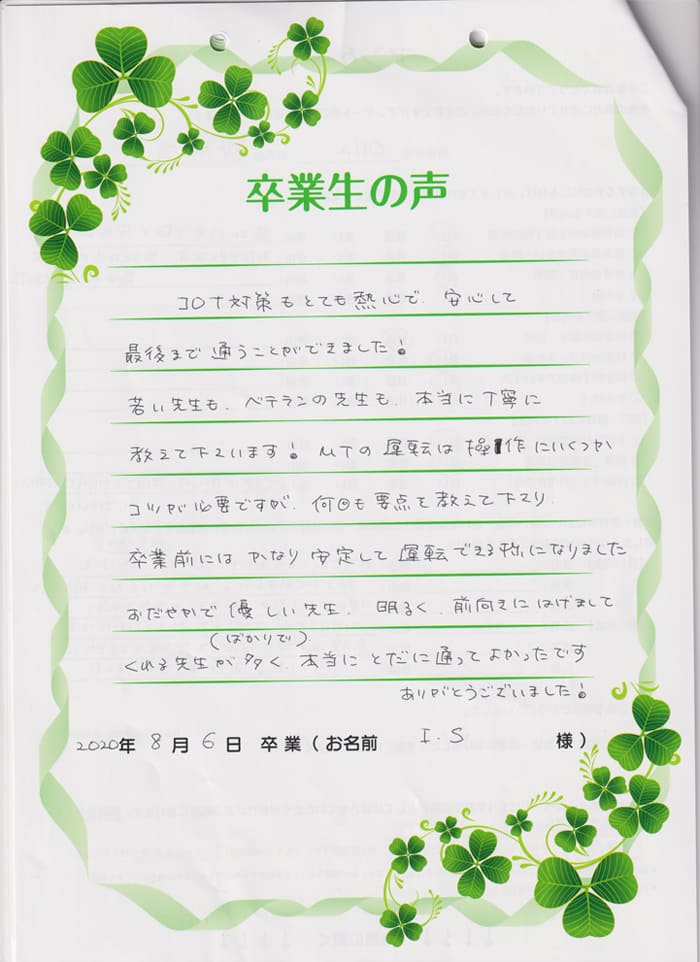 卒業生の声
コロナ対策もとても熱心で、安心して
最後まで通うことができました!
若い先生も、ベテランの先生も、本当に丁寧に
教えて下さいます! MTの運転は操作にいくつか
コツが必要ですが、何回も要点を教えて下さり、
卒業前にはかなり安定して運転できる様になりました
おだやかで優しい先生、明るく、前向きにはげまして
(ばかりで)
くれる先生が多く、本当にとだに通ってよかったです
ありがとうございました!
2020年 8月 6日 卒業(お名前 I.S 様)